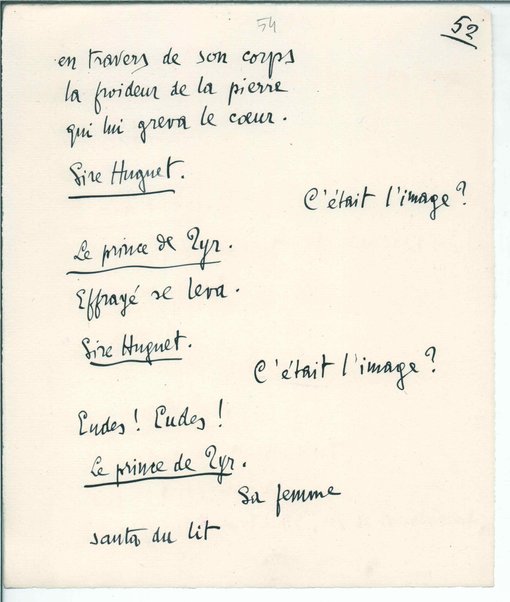 54
52
en travers de son corps
la froideur de la pierre
qui lui greva le cœur.
Sire Huguet.
C'était l'image ?
Le prince de Tyr.
Effrayé se leva.
Sire Huguet.
C'était l'image ?
Eudes ! Eudes !
Le prince de Tyr.
Sa femme
sauta du lit